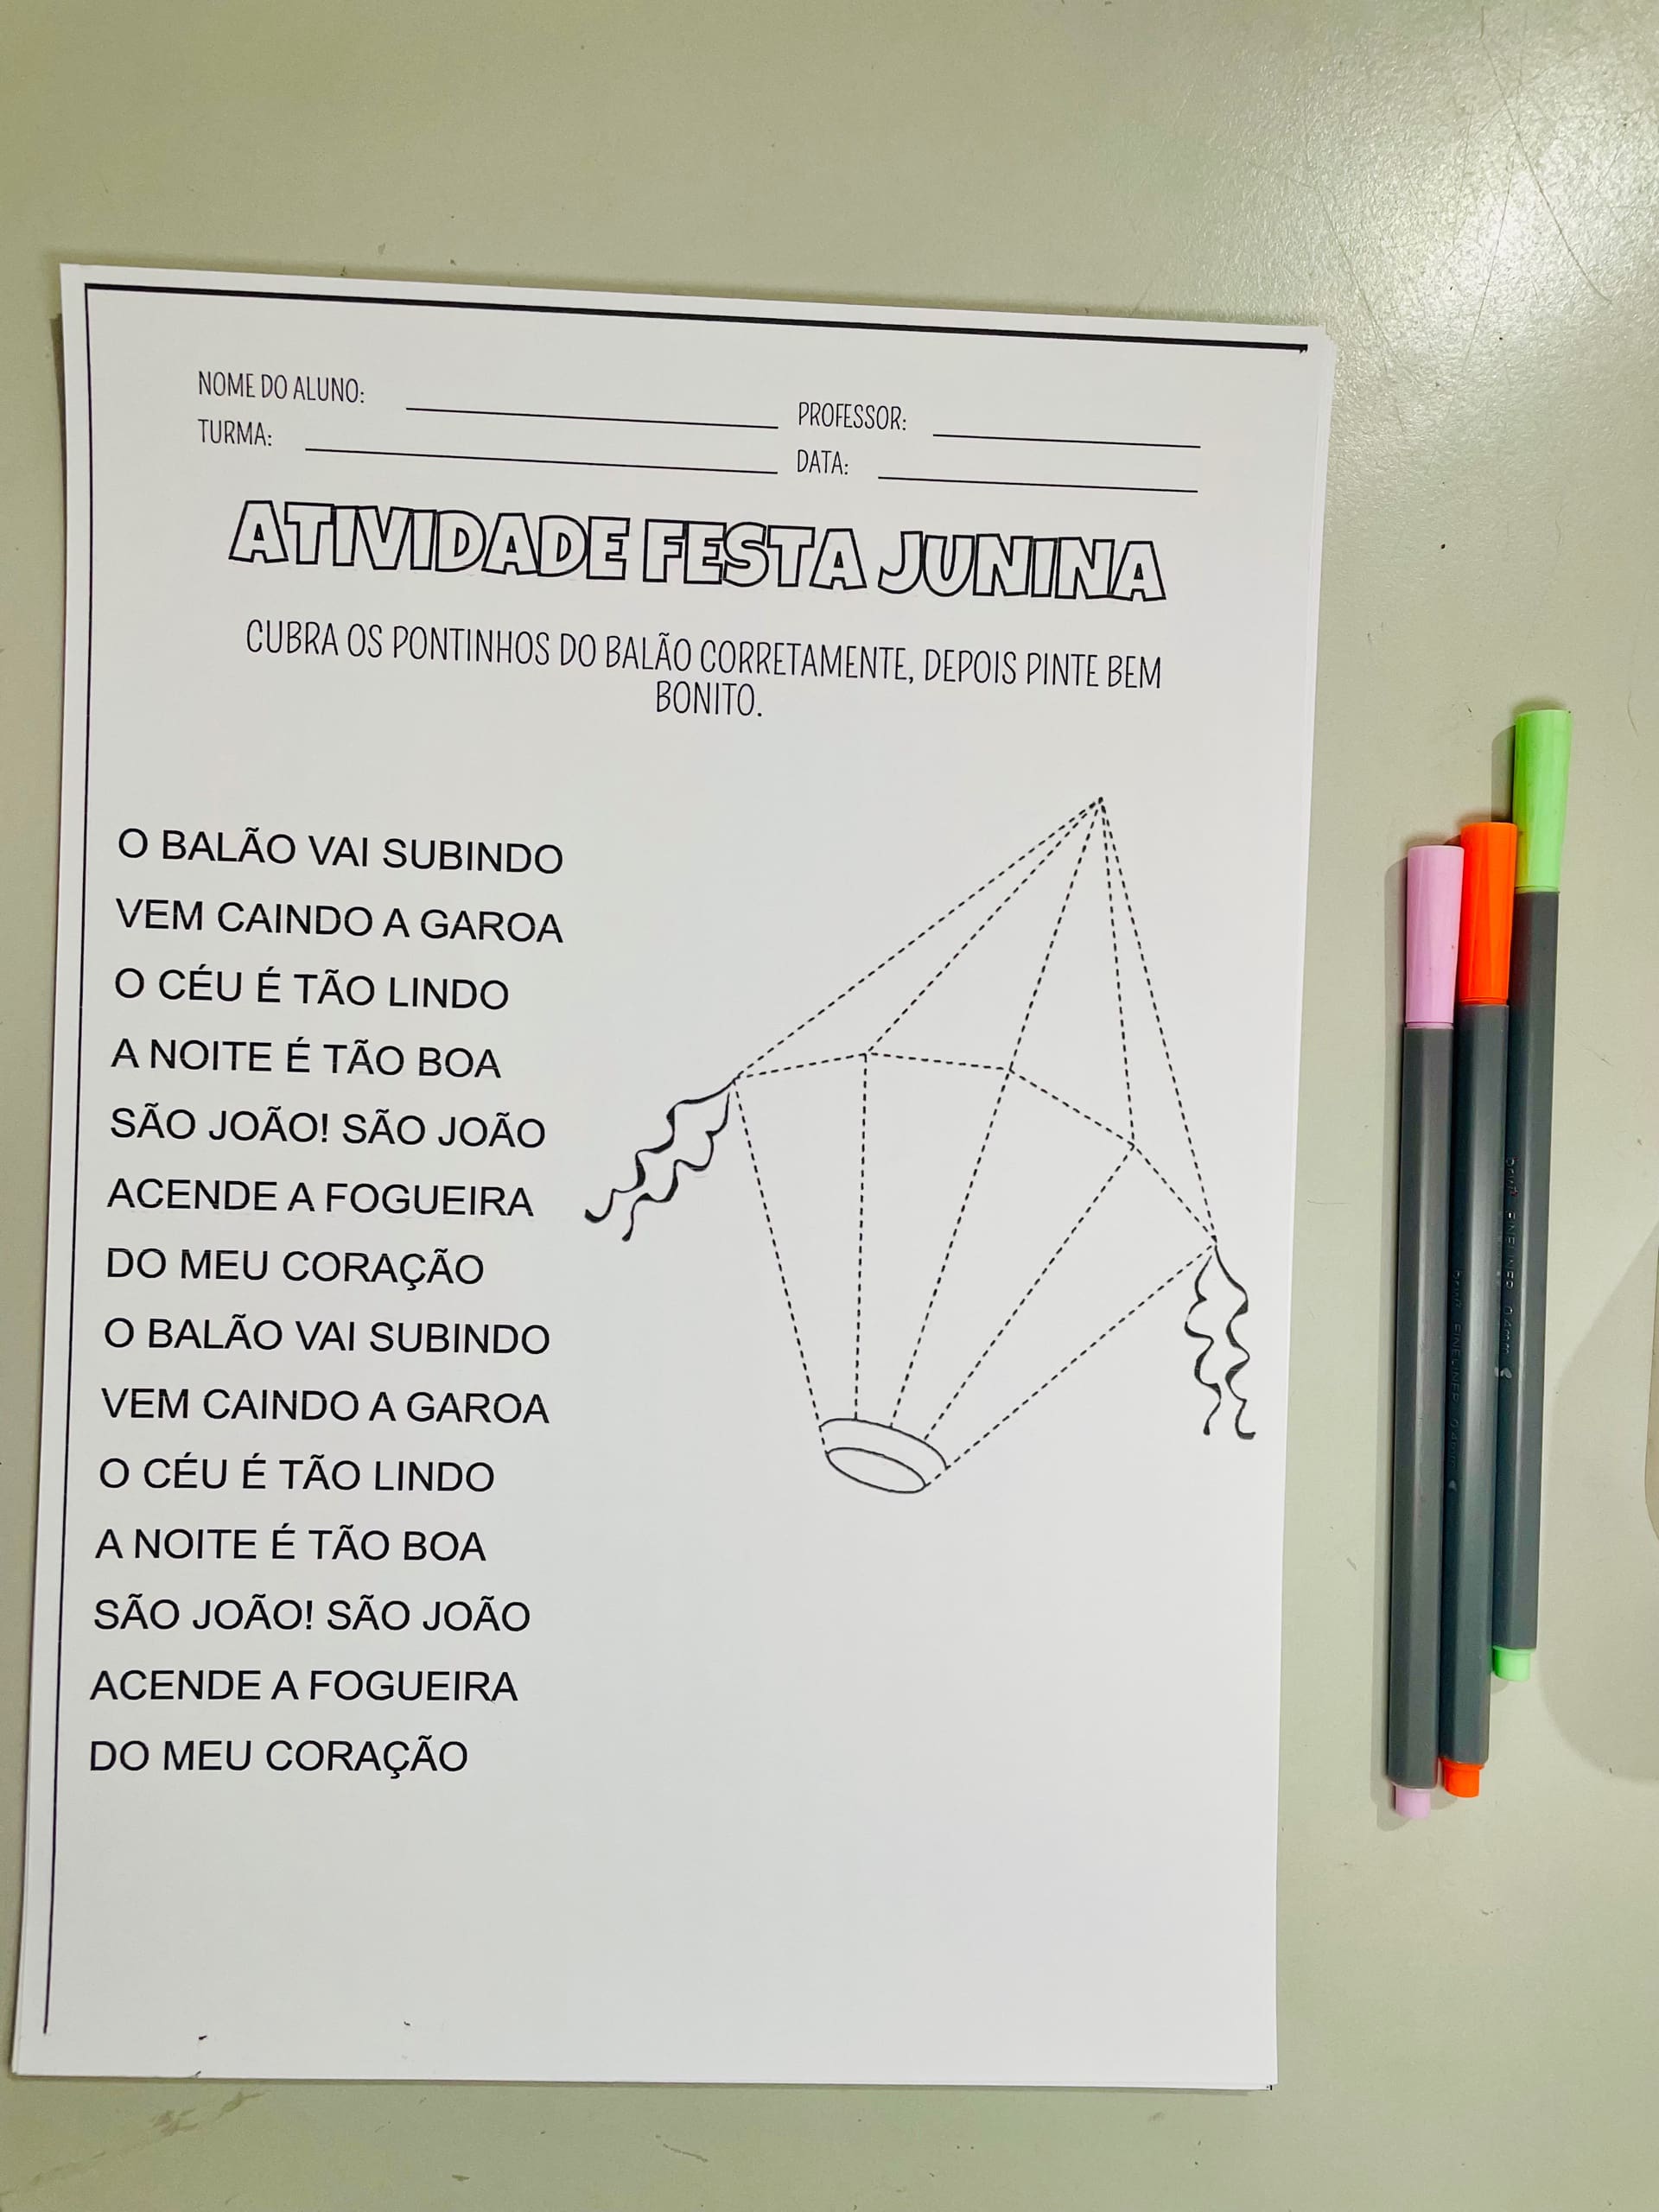 NOME DO ALUNO:
PROFESSOR:
TURMA:
DATA:
ATIVIDADE FESTA JUNINA
CUBRA OS PONTINHOS DO BALÃO CORRETAMENTE, DEPOIS PINTE BEM
BONITO.
O BALÃO VAI SUBINDO
VEM CAINDO A GAROA
O CÉU É TÃO LINDO
A NOITE É TÃO BOA
SÃO JOÃO! SÃO JOÃO
ACENDE A FOGUEIRA
DO MEU CORAÇÃO
O BALÃO VAI SUBINDO
VEM CAINDO A GAROA
O CÉU É TÃO LINDO
A NOITE É TÃO BOA
SÃO JOÃO! SÃO JOÃO
ACENDE A FOGUEIRA
DO MEU CORAÇÃO
FINELINER 0.4mm
FINELINER 0.4mm